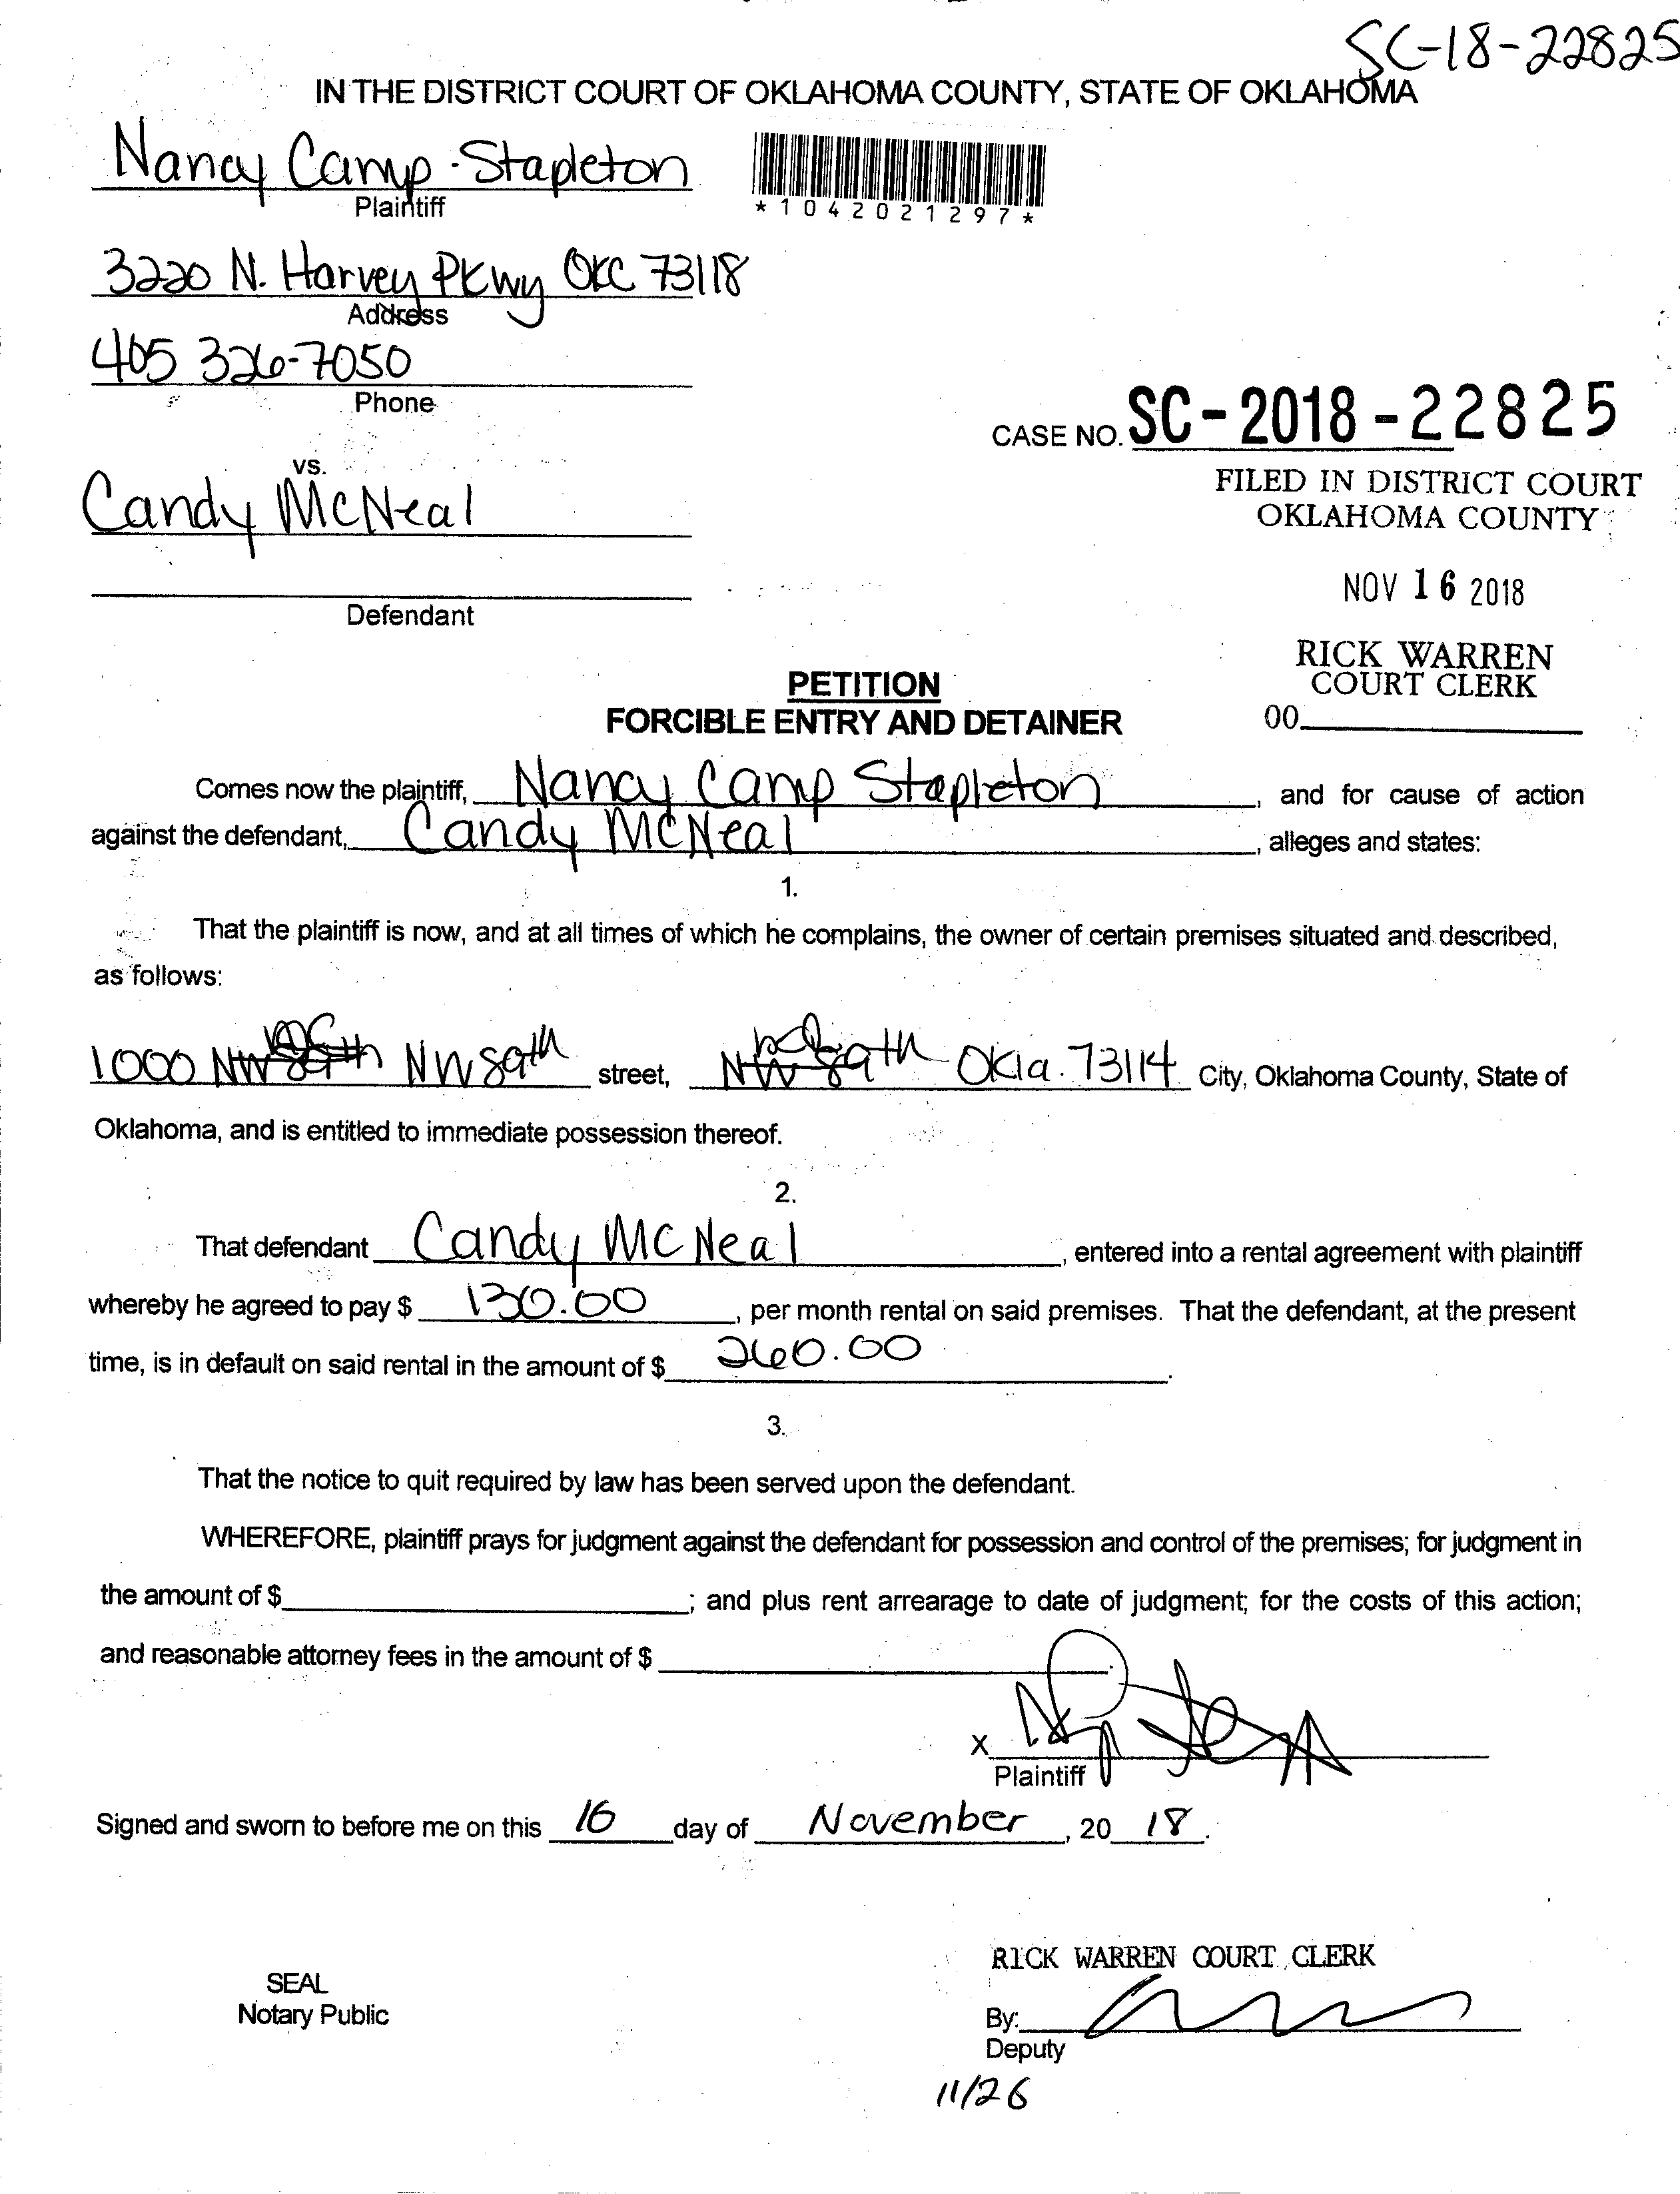 SC-18-22825
IN THE DISTRICT COURT OF OKLAHOMA COUNTY, STATE OF OKLAHOMA
Nancy Camp-Stapleton
Plaintiff
*1042021297*
3220 N. Harvey PKwy OKC 73118
Address
405 326-7050
Phone
CASE NO. SC-2018-22825
vs.
FILED IN DISTRICT COURT
OKLAHOMA COUNTY
Candy McNeal
NOV 16 2018
Defendant
RICK WARREN
COURT CLERK
00
PETITION
FORCIBLE ENTRY AND DETAINER
Comes now the plaintiff, Nancy Camp Stapleton, and for cause of action
against the defendant, Candy McNeal, alleges and states:
1.
That the plaintiff is now, and at all times of which he complains, the owner of certain premises situated and described,
as follows:
1000 NW 89th street, Okla. 73114 City, Oklahoma County, State of
Oklahoma, and is entitled to immediate possession thereof.
2.
That defendant Candy McNeal, entered into a rental agreement with plaintiff
whereby he agreed to pay $ 130.00, per month rental on said premises. That the defendant, at the present
time, is in default on said rental in the amount of $ 260.00.
3.
That the notice to quit required by law has been served upon the defendant.
WHEREFORE, plaintiff prays for judgment against the defendant for possession and control of the premises; for judgment in
the amount of $; and plus rent arrearage to date of judgment; for the costs of this action;
and reasonable attorney fees in the amount of $.
X
Plaintiff
Signed and sworn to before me on this 16 day of November, 20 18.
RICK WARREN COURT CLERK
SEAL
Notary Public
By:
Deputy
11/26